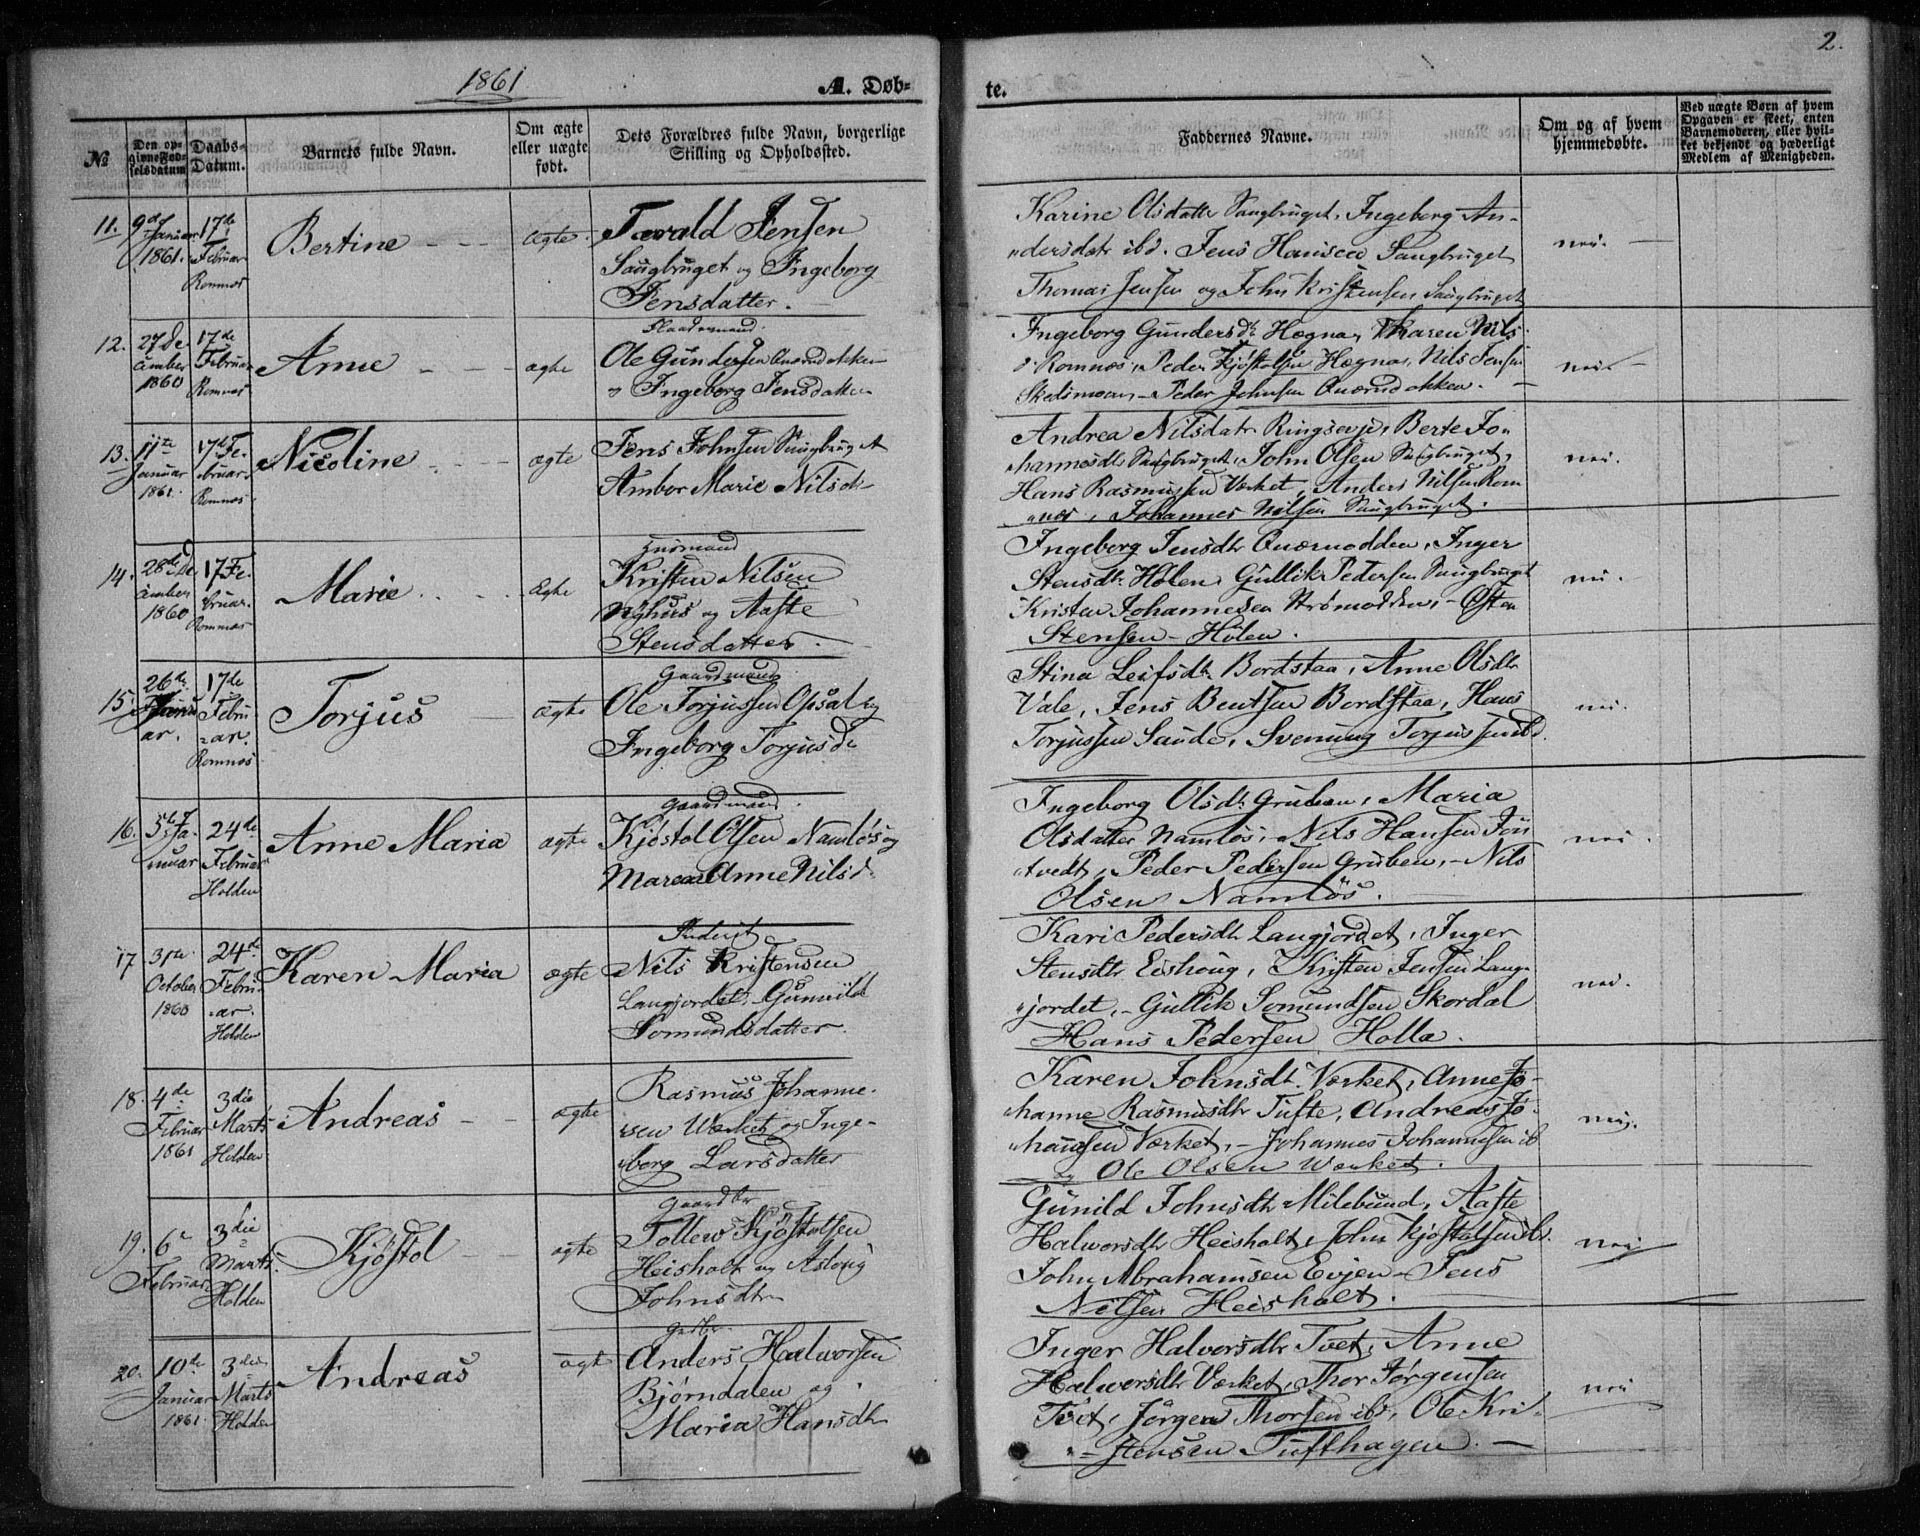 1861
A. Døb-
te.
2.
№
Den opgivne Fødselsdatum
Daabs-Datum.
Barnets fulde Navn.
Om ægte eller uægte født.
Dets Forældres fulde Navn, borgerlige Stilling og Opholdssted.
Faddernes Navne.
Om og af hvem hjemmedøbte.
Ved uægte Børn af hvem Opgaven er skeet, enten Barnemoderen, eller hvilket bekjendt og hæderligt Medlem af Menigheden.
11. 9de Januar 1861. 17de Februar Romnæs
Bertine
ægte
Tarald Jensen
Saugbruget og Ingeborg
Jensdatter.
Karine Olsdatter Saugbruget, Ingeborg An-
dersdatr ibd. Jens Hansen Saugbruget
Thomas Jensen og John Kristensen Saugbruget
nei.
12. 27 December 1860 17de Februar Romnæs
Anne
ægte
Ole Gundersen
og Ingeborg Jensdatter
Ingeborg Gundersdr Hægna, Karen Nils-
dr Romnæs, Peder Kjøstolsen Hægna, Nils Jensen
Skedsmoen, Peder Johnsen
nei
13. 11te Januar 1861. 17de Februar Romnæs
Nicoline
ægte
Jens Johnsen Saugbruget
Ambor Marie Nilsdr
Andrea Nilsdatr Ringsevje, Berte Jo-
hannesdr Saugbruget, John Olsen Saugbruget,
Hans Rasmussen Værket, Anders Nilsen Rom-
næs, Johannes Nilsen Saugbruget.
nei.
14. 28de December 1860 17 Februar. Romnæs
Marie
ægte
Husmand
Kristen Nilsen
Nyhus og Aaste
Stensdatter.
Ingeborg Jensdtr Qværnodden, Inger
Stensdr Hølen, Gullik Pedersen Saugbruget
Kristen Johannesen Strømodden, - Østen
Stensen - Hølen.
nei.
15. 26de Januar. 17de Februar. Romnæs
Torjus
ægte
Gaardmand
Ole Torjussen Opsal og
Ingeborg Torjusdr
Stina Leifsdr Bordstaa, Anne Olsdtr
Vale, Jens Bentsen Bordstaa, Hans
Torjussen Saude, Svenung Torjussen ibd.
nei.
16. 5te Januar 24de Februar Holden
Anne Maria
ægte
Gaardmand.
Kjøstol Olsen Namløs og
Maren Anne Nilsd.
Ingeborg Olsdr Gruben, Maria
Olsdatter Namløs, - Nils Hansen Jøn-
tvedt, Peder Pedersen Gruben, - Nils
Olsen Namløs.
nei.
17 31te October 1860 24de Februar. Holden
Karen Maria
ægte
Inderst
Nils Kristensen
Langjordet, Gunnild
Somundsdatter.
Kari Pedersdtr Langjordet, Inger
Stensdtr Eishoug, Kristen Jensen Lang-
jordet, - Gullik Somundsen Skordal
Hans Pedersen Holla.
nei.
18. 4de Februar 1861 3die Marts Holden
Andreas
ægte
Rasmus Johanne-
sen Værket og Inge-
borg Larsdatter
Karen Johnsdt. Værket, Anne Jo-
hanne Rasmusdtr Tufte, Andreas Jo-
hansen Værket, - Johannes Johannesen ib
og Ole Olsen Værket.
nei.
19. 6te Februar 3die Marts. Holden
Kjøstol
ægte
Gaardbr
Tollev Kjøstolsen
Heisholt og Asloug
Johnsdtr
Gunild Johnsdtr Milebund, Aaste
Halvorsdtr Heisholt, John Kjøstolsen ib.
John Abrahamsen Evjen - Jens
Nilsen Heisholt.
nei
20. 10de Januar 1861. 3die Marts Holden
Andreas
ægte
Gdbr.
Anders Halvorsen
Bjørndalen og
Maria Hansdtr
Inger Halvorsdtr Tvet, Anne
Halvorsdtr Værket, Thor Jørgensen
Tvet, Jørgen Thorsen ibd, Ole Kri-
stensen Tufthagen.
nei